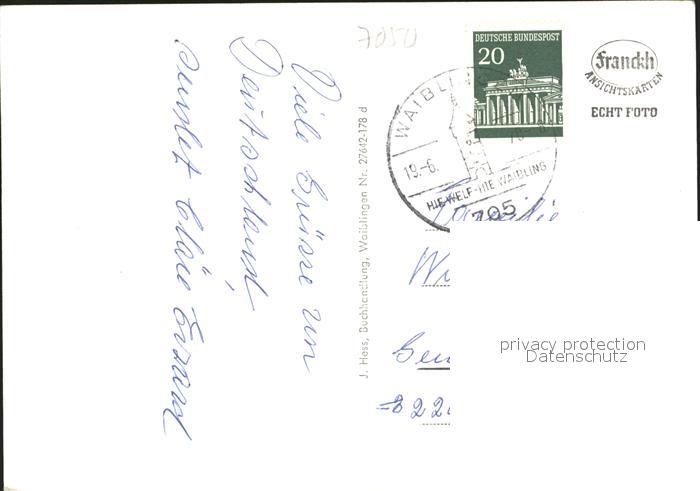 7050
Viele Grüsse von
Deutschland
sendet Claire
J. Hess, Buchhandlung, Waiblingen Nr. 27642-178 d
DEUTSCHE BUNDESPOST
20
WAIBLINGEN
19.-6.
19.-6.
HIE WELF - HIE WAIBLING
705
Franckh
ANSICHTSKARTEN
ECHT FOTO
Familie
privacy protection
Datenschutz